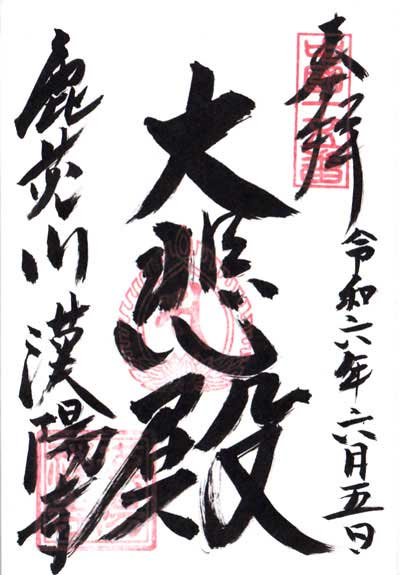 奉拝
令和六年六月五日
大悲殿
鹿苑山漢陽寺